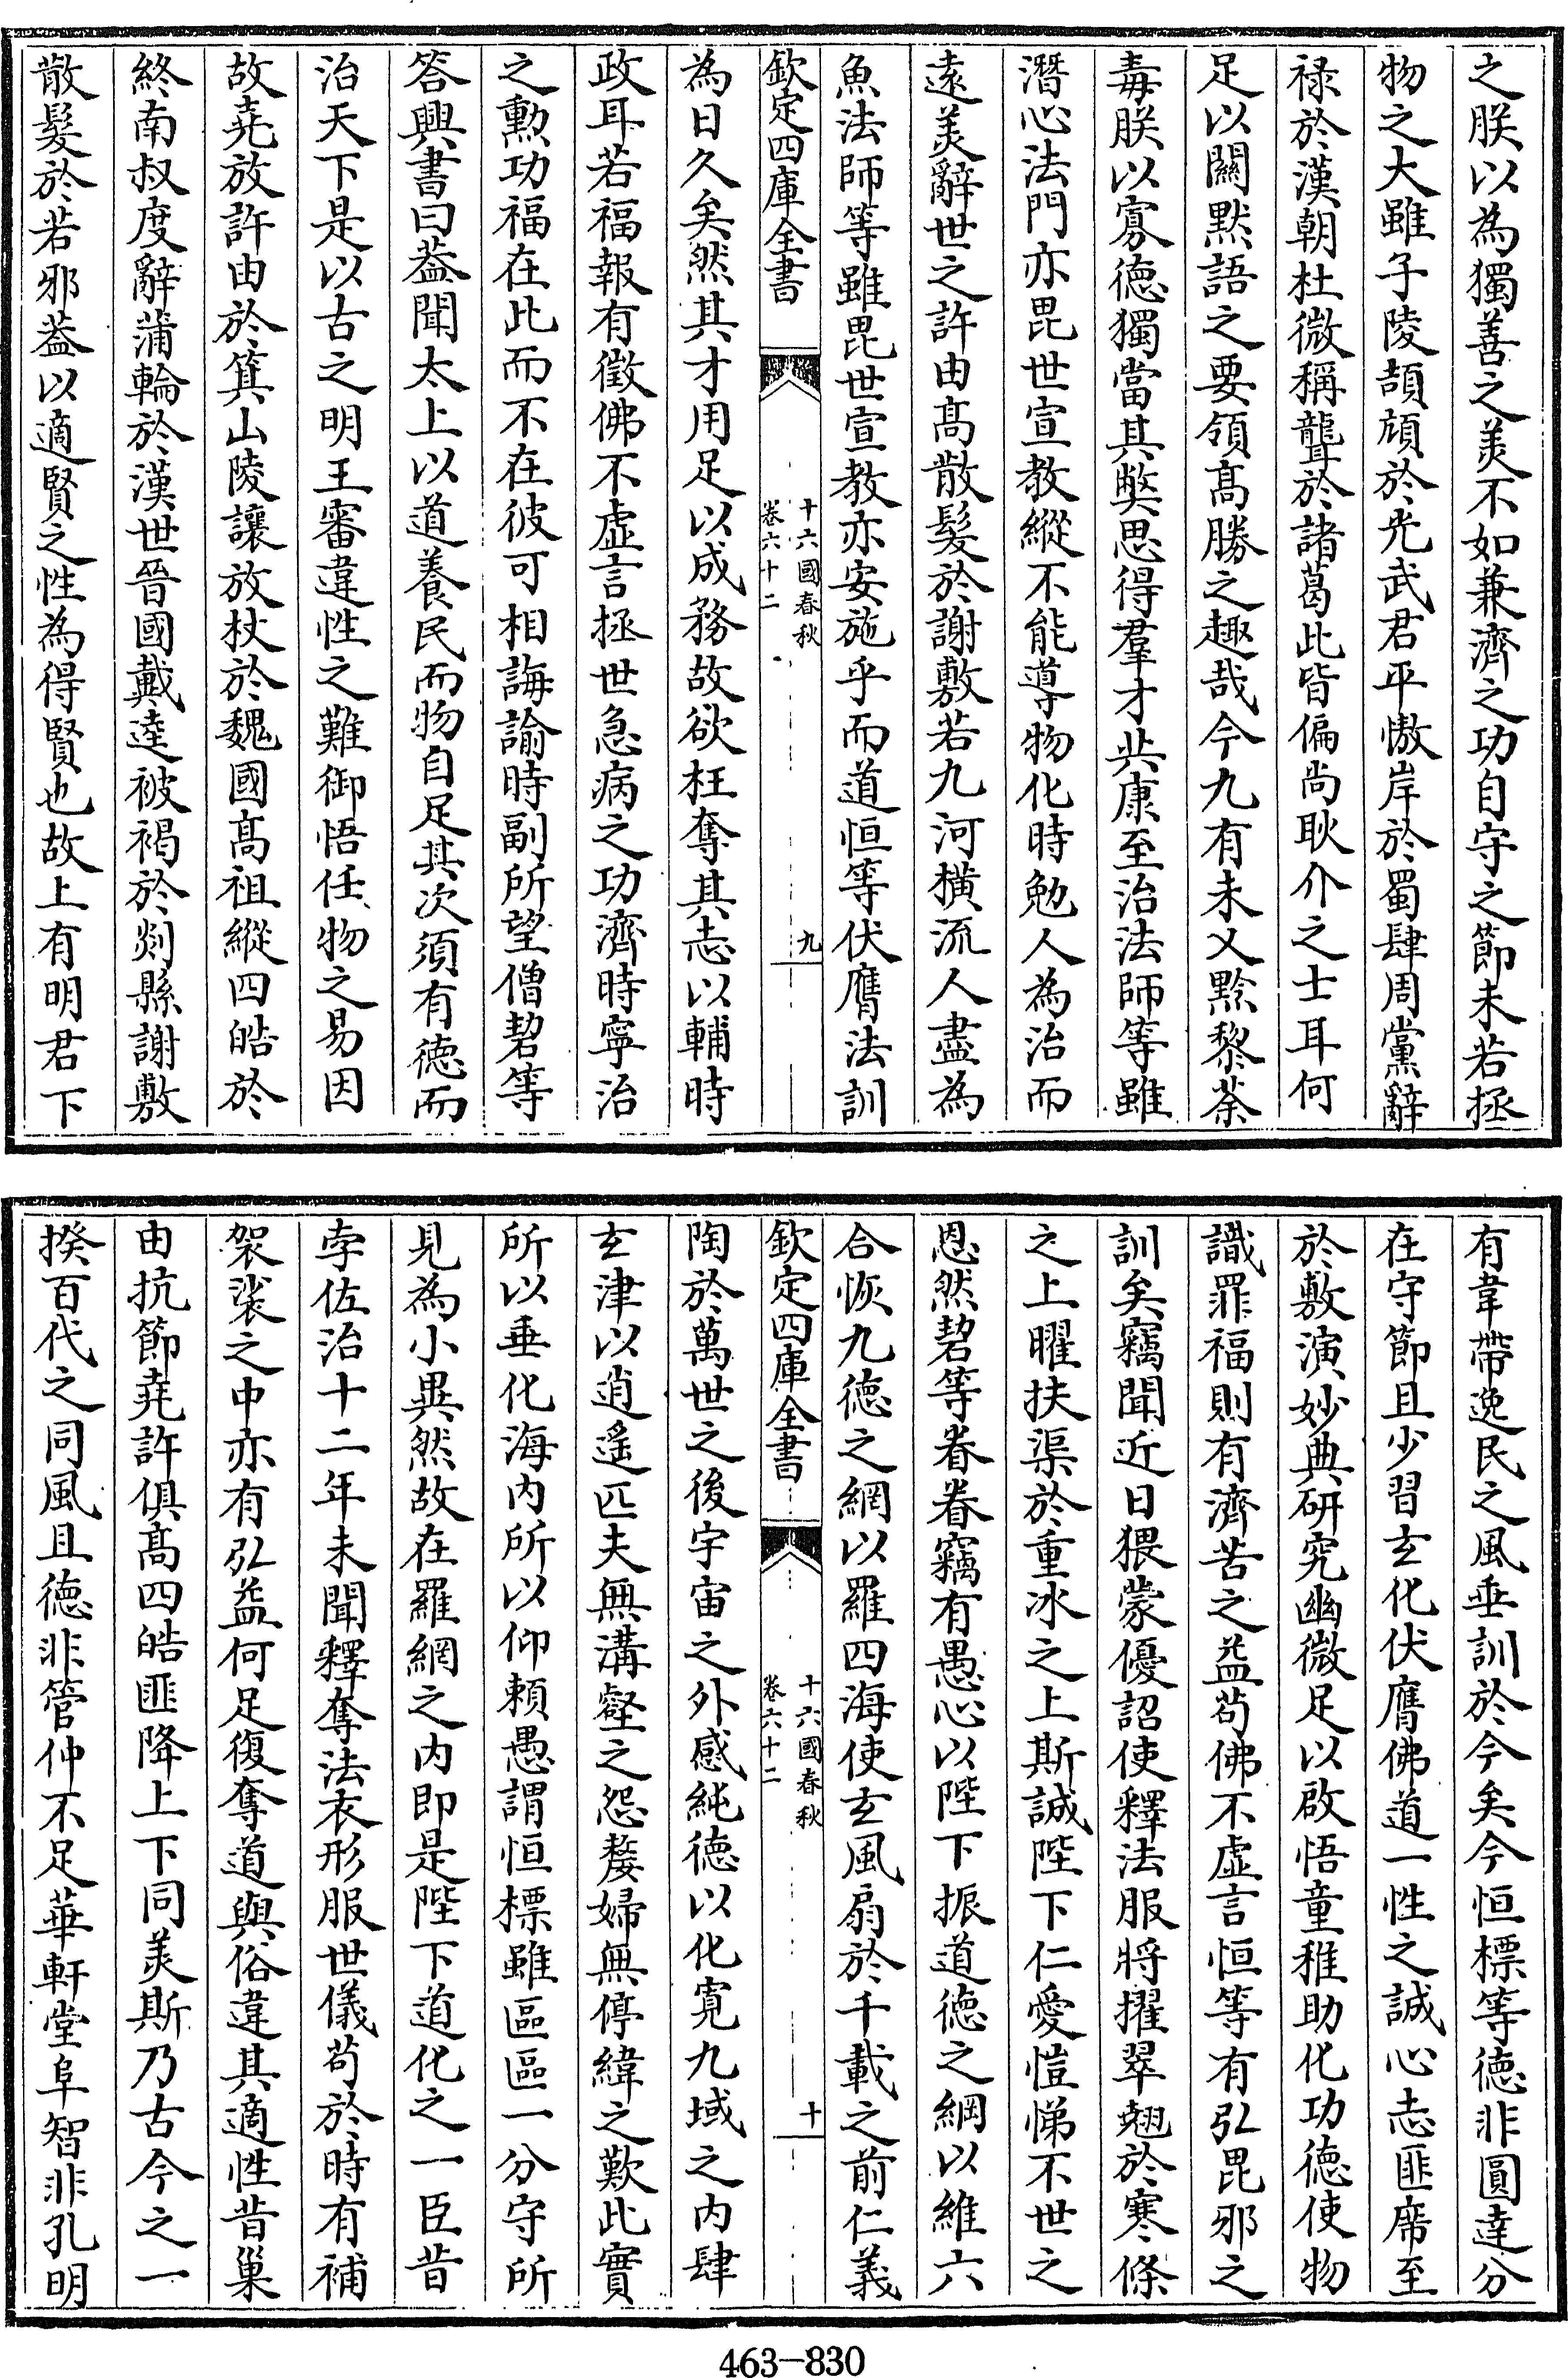 之朕以為獨善之美不如兼濟之功自守之節未若拯
物之大雖子陵頡頏於光武君平慠岸於蜀肆周黨辭
祿於漢朝杜微稱聾於諸葛此皆偏尚耿介之士耳何
足以關默語之要領髙勝之趣哉今九有未乂黔黎荼
毒朕以寡德獨當其弊思得羣才共康至治法師等雖
潛心法門亦毘世宣教縱不能導物化時勉人為治而
遠美辭世之許由髙散髮於謝敷若九河橫流人盡為
魚法師等雖毘世宣教亦安施乎而道恒等伏膺法訓
欽定四庫全書
十六國春秋
卷六十二
九
為日久矣然其才用足以成務故欲枉奪其志以輔時
政耳若福報有徵佛不虛言拯世急病之功濟時寧治
之勲功福在此而不在彼可相誨諭時副所望僧䂮等
答興書曰葢聞太上以道養民而物自足其次須有德而
治天下是以古之明王審違性之難御悟任物之易因
故堯放許由於箕山陵讓放杖於魏國髙祖縱四皓於
終南叔度辭蒲輪於漢世晉國戴逵被褐於剡縣謝敷
散髮於若邪葢以適賢之性為得賢也故上有明君下
有韋帶逸民之風垂訓於今矣今恒標等德非圓達分
在守節且少習𤣥化伏膺佛道一性之誠心志匪席至
於敷演妙典研究幽微足以啟悟童稚助化功德使物
識罪福則有濟苦之益茍佛不虛言恒等有弘毘邪之
訓矣竊聞近日猥蒙優詔使釋法服將擢翠翹於寒條
之上曜扶渠於重冰之上斯誠陛下仁愛愷悌不世之
恩然䂮等眷眷竊有愚心以陛下振道徳之綱以維六
合恢九德之網以羅四海使𤣥風扇於千載之前仁義
欽定四庫全書
十六國春秋
卷六十二
十
陶於萬世之後宇宙之外感純德以化寛九域之内肆
𤣥津以逍遙匹夫無溝壑之怨嫠婦無停緯之歎此實
所以垂化海内所以仰賴愚謂恒標雖區區一分守所
見為小異然故在羅網之内即是陛下道化之一臣昔
孛佐治十二年未聞釋奪法衣形服世儀茍於時有補
袈裟之中亦有弘益何足復奪道與俗違其適性昔巢
由抗節堯許俱髙四皓匪降上下同美斯乃古今之一
揆百代之同風且德非管仲不足華軒堂阜智非孔明
463—830